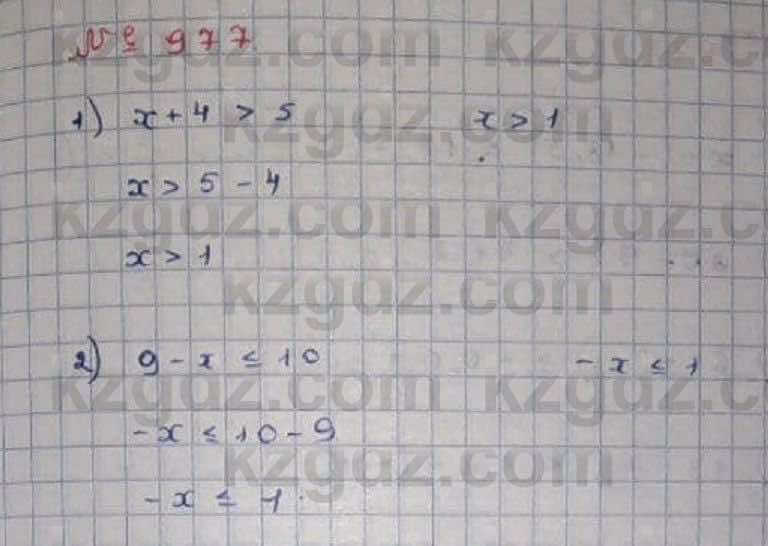 № 977
1) x + 4 > 5 x > 1
x > 5 - 4
x > 1
2) 9 - x ≤ 10 - x ≤ 1
- x ≤ 10 - 9
- x ≤ 1
kzgdz.com kzgdz.com
kzgdz.com
kzgdz.com kzgdz.com
kzgdz.com
kzgdz.com kzgdz.com
kzgdz.com